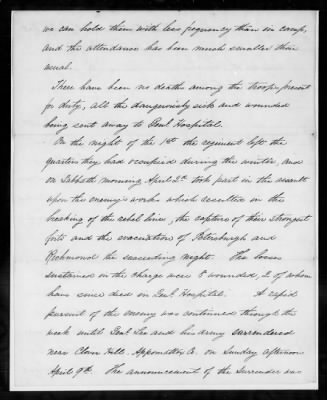 we can hold them with less frequency than in camp,
and the attendance has been much smaller than
usual.
There have been no deaths among the troops present
for duty, all the dangerously sick and wounded
being sent away to Genl Hospital.
On the night of the 1st the regiment left the
quarters they had occupied during the winter, and
on Sabbath morning April 2d took part in the assault
upon the enemy's works which resulted in the
breaking of the rebel lines, the capture of their strongest
forts and the evacuation of Petersburgh and
Richmond the succeeding night. The losses
sustained in the charge were 8 wounded, 2 of whom
have since died in Genl Hospital. A rapid
pursuit of the enemy was continued through the
week until Genl Lee and his army surrendered
near Clover Hill. Appomattox Co. on Sunday afternoon
April 9th. The announcement of the Surrender was